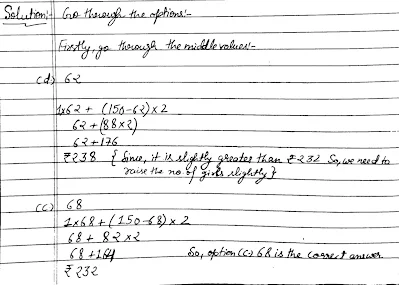 Solution:- Go through the options:-
Firstly, go through the middle values:-
(d) 62
1x62 + (150-62)x2
62+(88x2)
62+176
₹238 { Since, it is slightly greater than ₹232 So, we need to
raise the no of girls slightly }
(c) 68
1x68+(150-68)x2
68 + 82 x2
68 +164
So, option (c) 68 is the correct answer
₹232